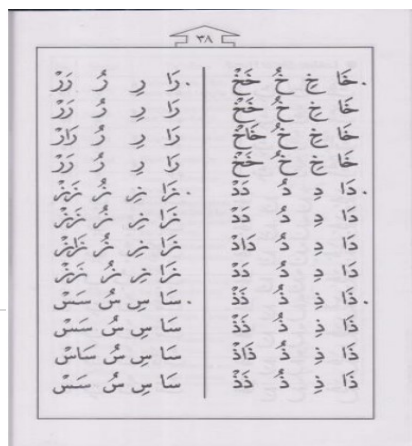 ٣٨
. خَا خِ خُ خَخْ
خَا خِ خُ خَخْ
خَا خِ خُ خَاخْ
خَا خِ خُ خَخْ
. دَا دِ دُ دَدْ
دَا دِ دُ دَدْ
دَا دِ دُ دَادْ
دَا دِ دُ دَدْ
. ذَا ذِ ذُ ذَذْ
ذَا ذِ ذُ ذَذْ
ذَا ذِ ذُ ذَاذْ
ذَا ذِ ذُ ذَذْ
. رَا رِ رُ رَرْ
رَا رِ رُ رَرْ
رَا رِ رُ رَارْ
رَا رِ رُ رَرْ
. زَا زِ زُ زَزْ
زَا زِ زُ زَزْ
زَا زِ زُ زَازْ
زَا زِ زُ زَزْ
. سَا سِ سُ سَسْ
سَا سِ سُ سَسْ
سَا سِ سُ سَاسْ
سَا سِ سُ سَسْ